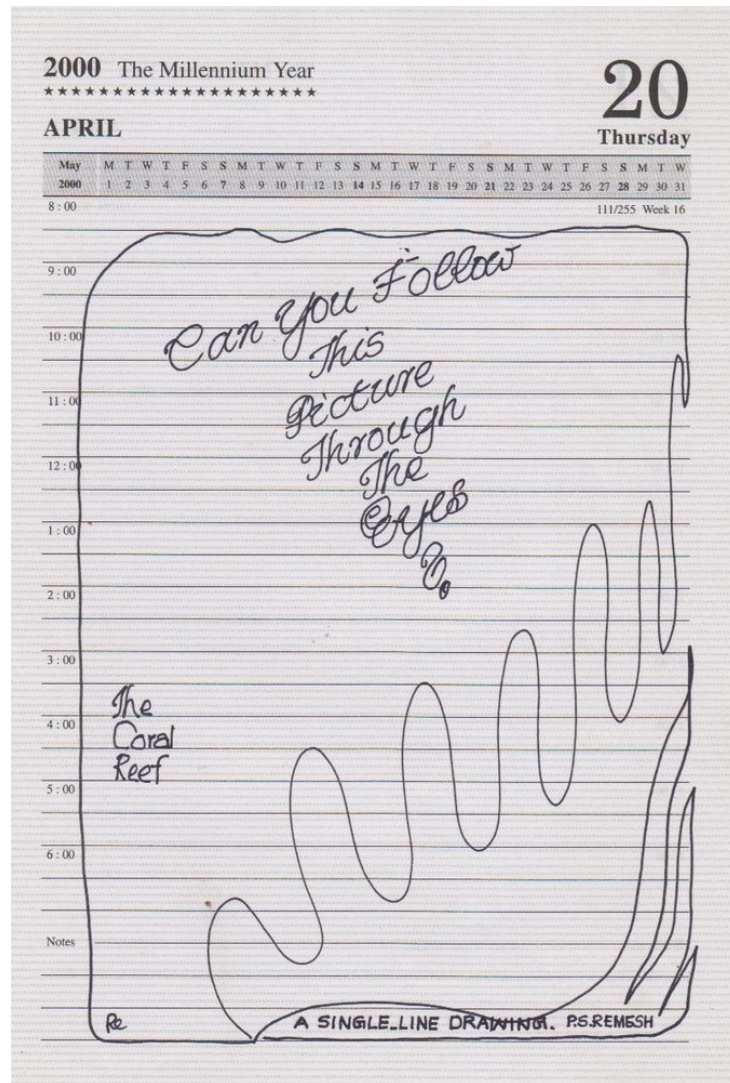 2000 The Millennium Year
★★★★★★★★★★★★★★★★★★★★
20
APRIL
Thursday
May M T W T F S S M T W T F S S M T W T F S S M T W T F S S M T W
2000 1 2 3 4 5 6 7 8 9 10 11 12 13 14 15 16 17 18 19 20 21 22 23 24 25 26 27 28 29 30 31
8:00
111/255 Week 16
9:00
10:00
11:00
12:00
1:00
2:00
3:00
4:00
5:00
6:00
Notes
Can You Follow
This
Picture
Through
The
Eyes
?
The
Coral
Reef
Re
A SINGLE_LINE DRAWING. P.S.REMESH